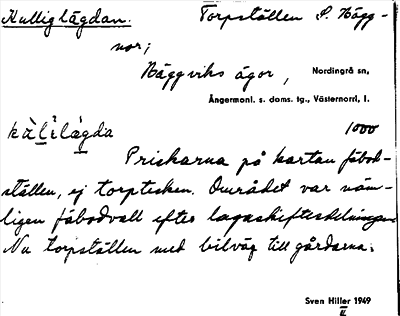 Kulliglägdan. Torpställen S. Häggnor;
Häggviks ägor, Nordingrå sn,
Ångermanl. s. doms. tg., Västernorrl. l.
kàlilägda 1000
Prickarna på kartan fäbodställen, ej torptecken. Området var nämligen fäbodvall efter lagaskiftesdelningen.
Nu torpställen med bilväg till gårdarna.
Sven Hiller 1949